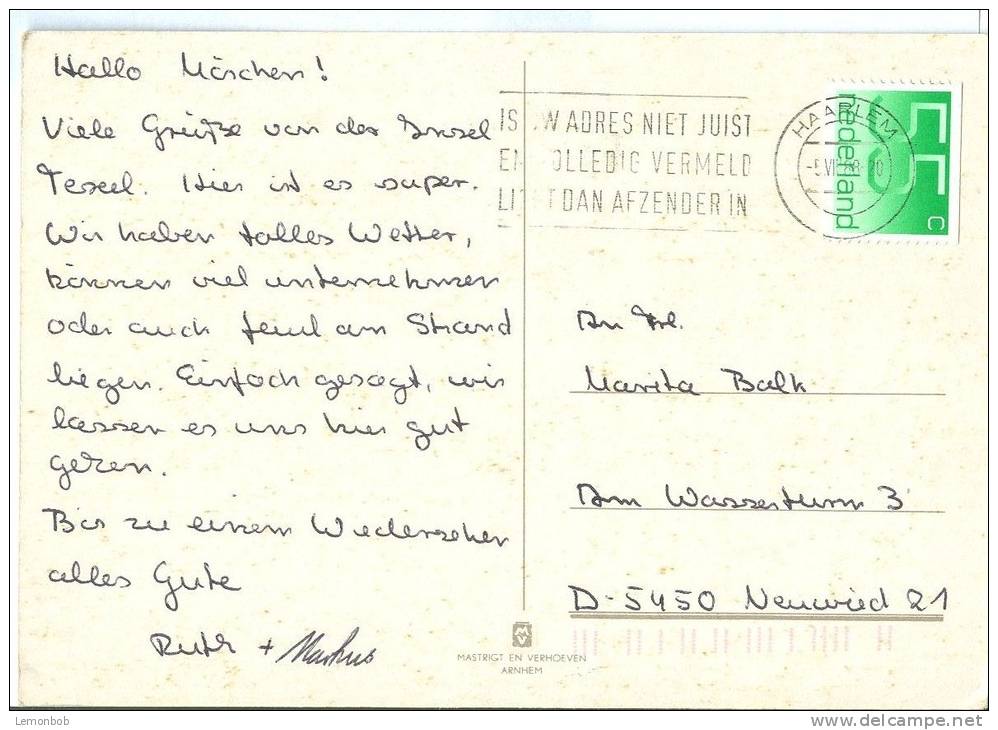 Hallo Möschen!
Viele Grüße von der Insel
Texel. Hier ist es super.
Wir haben tolles Wetter,
können viel unternehmen
oder auch faul am Strand
liegen. Einfach gesagt, wir
lassen es uns hier gut
gehen.
Bis zu einem Wiedersehen
alles Gute
Ruth + Markus
IS UW ADRES NIET JUIST
EN VOLLEDIG VERMELD
LICHT DAN AFZENDER IN
HAARLEM
nederland
55
c
An Frl.
Marita Balk
Am Wasserturm 3
D-5450 Neuwied 21
MV
MASTRIGT EN VERHOEVEN
ARNHEM
Lemonbob
www.delcampe.net